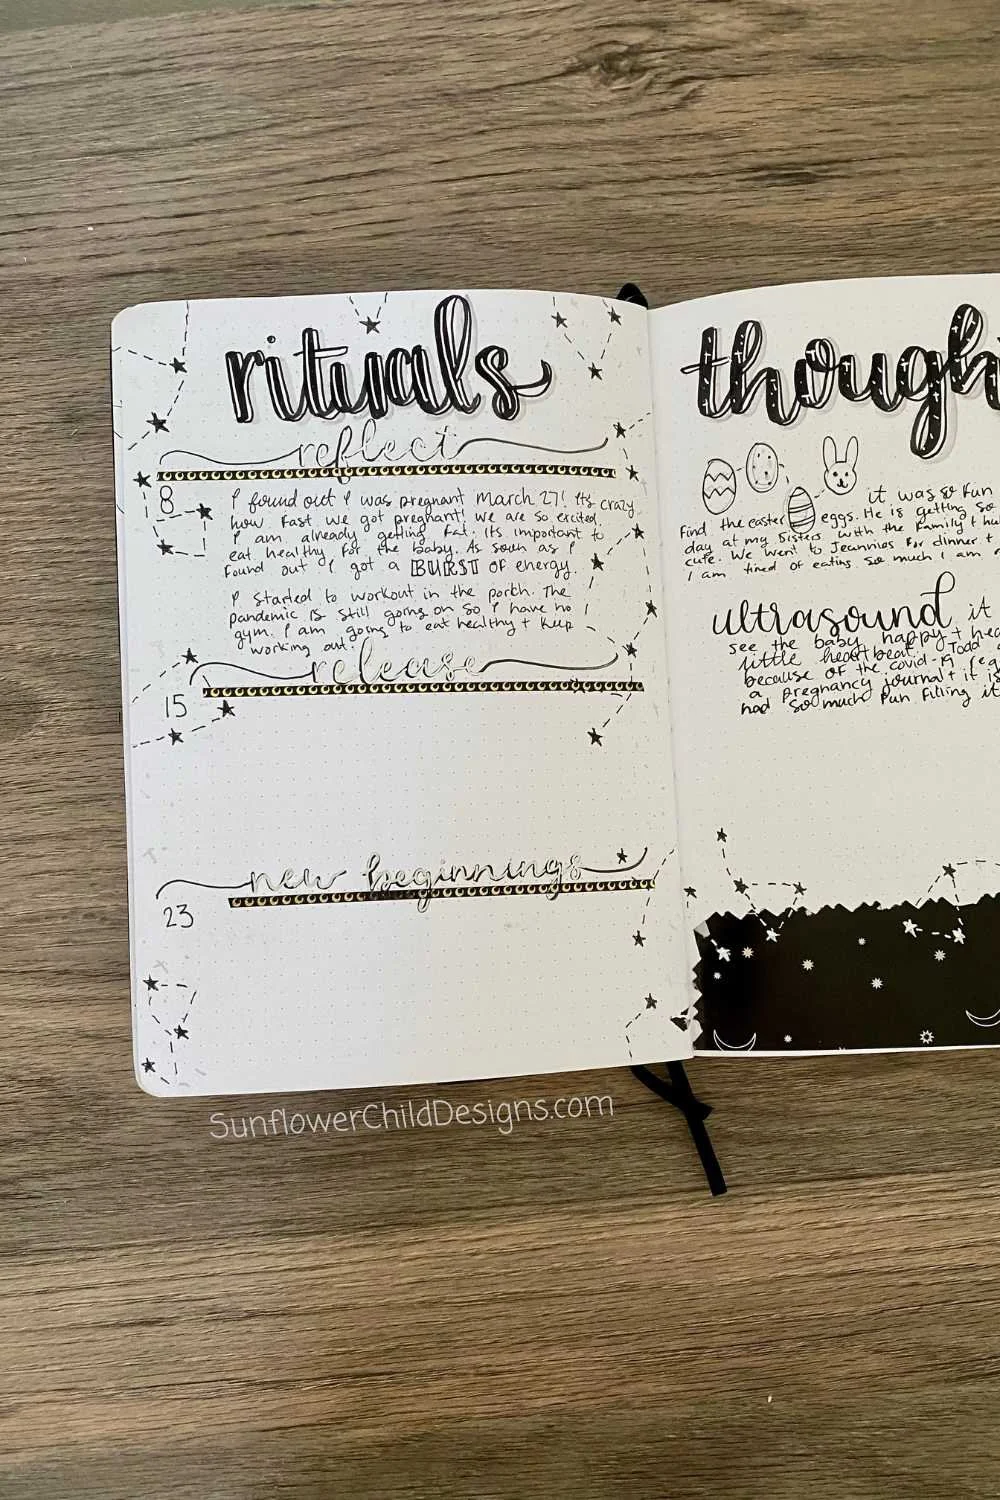 rituals
reflect
8
I found out I was pregnant March 27! Its crazy
how fast we got pregnant! We are so excited.
I am already getting fat. Its important to
eat healthy for the baby. As soon as I
found out I got a BURST of energy.
I started to workout in the porch. The
pandemic is still going on so I have no
gym. I am going to eat healthy + keep
working out.
release
15
new beginnings
23
though
it was so fun
find the easter eggs. He is getting so
day at my sisters with the family + hu
cute. We went to Jeannies for dinner +
I am tired of eating so much I am
ultrasound it
see the baby happy + hea
little heartbeat. Todd
because of the covid-19 reg
a pregnancy journal + it is
had so much fun filling it
SunflowerChildDesigns.com